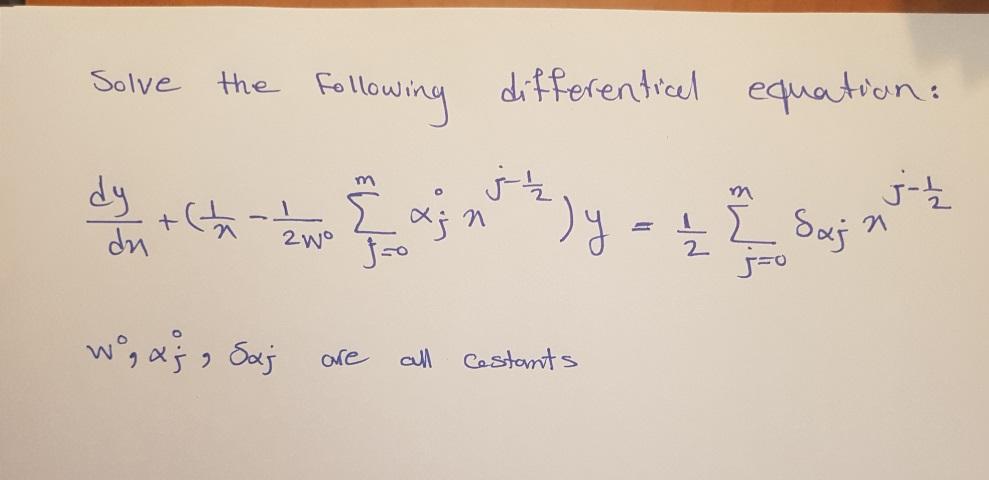 Solve the Following differential equation:
dy/dx + (1/x - 1/(2w°) Σ_{j=0}^{m} α°_j x^{j-1/2}) y = 1/2 Σ_{j=0}^{m} δα_j x^{j-1/2}
w°, α°_j, δα_j are all costants